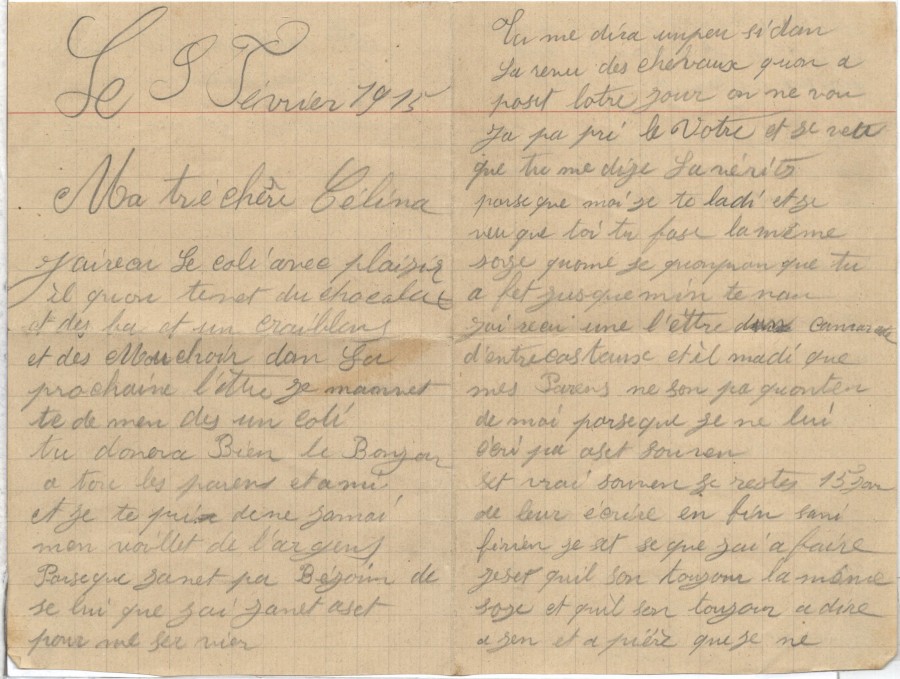 Le 5 Février 1915
Ma tré chère Célina
jaireçu le coli avec plaizir
il quon tenet du chocolat
et des ba et un
et des Mouchoir dan La
prochaine l'ètre je mamnet
te de men des un coli
tu donera Bien le Bonjour
a tou les parens et ami
et je te prie de ne jamai
men voillet de l'argens
Parseque janet pa Bézoin de
se lui que jai janet aset
pour me ser vier
Tu me dira unpeu si dan
La revu des chevaux quon a
paset lotre jour on ne vou
ja pa pri le Votre et je veu
que tu me dize La vérité
parse que moi je te ladi et je
veu que toi tu fase la mème
soze quome je quonpran que tu
a fet jusque min te nan
jai reçu une l'èttre camarade
d'entrecastaux et èl madi que
mes Parens ne son pa quonten
de moi parseque je ne lui
écri pa aset souven
set vrai souven je restes 15 Jour
de leur écrire en fin sani
firien je set se que jai a faire
jeset quil son toujour la mème
soze et quil son toujour a dire
a jen et a pièrè que je ne